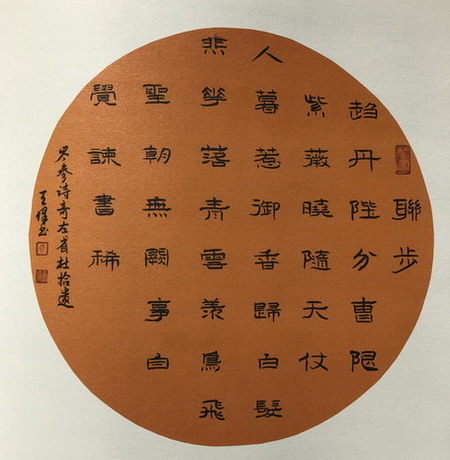 聯步
趍丹陛分曹限
紫薇曉隨天仗
人暮惹御香歸白髮
悲花落青雲羨鳥飛
聖朝無闕事自
覺諫書稀
岑参诗寄左省杜拾遗
王书